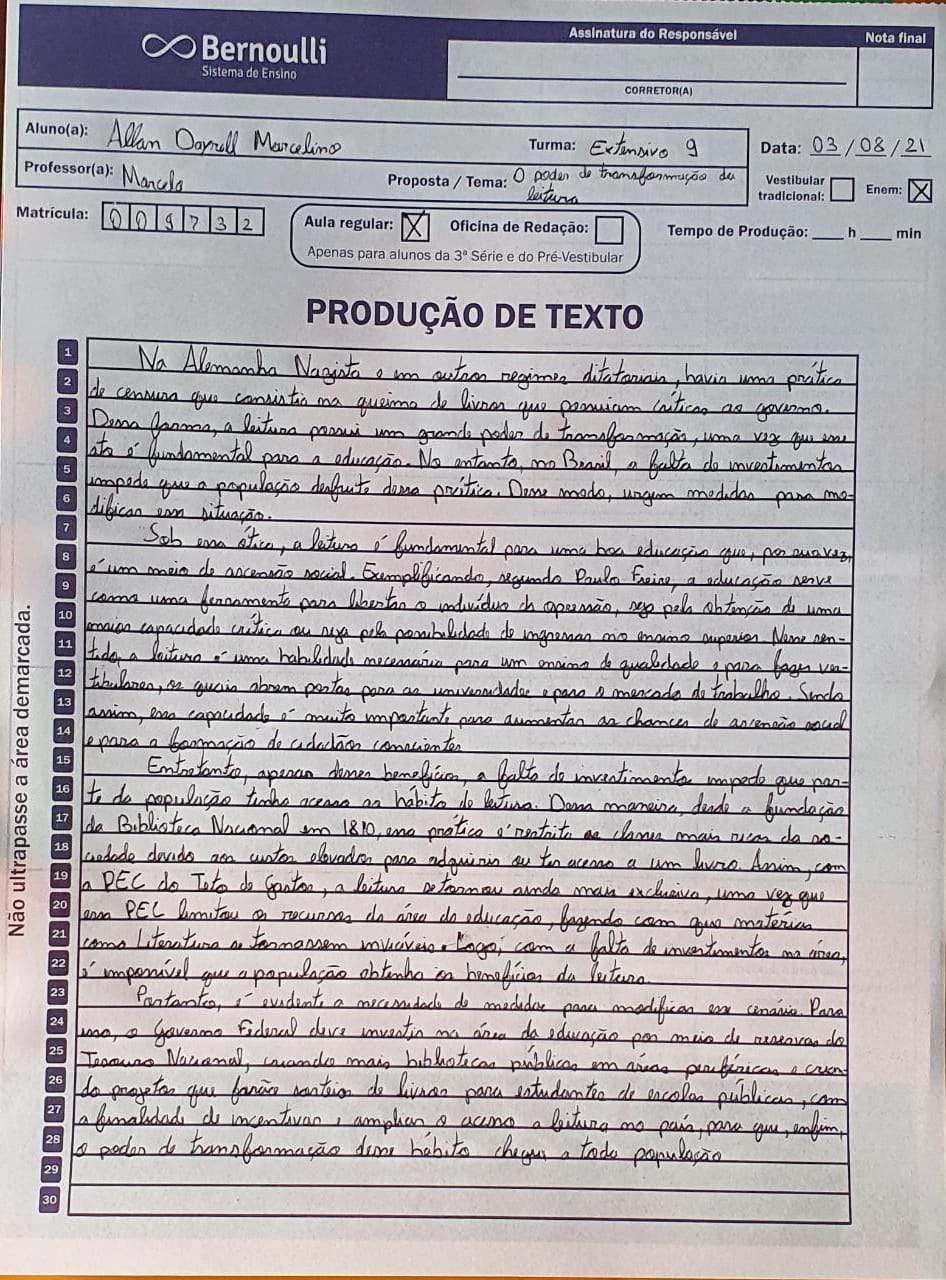 Bernoulli
Sistema de Ensino
Assinatura do Responsável
CORRETOR(A)
Nota final
Aluno(a): Allan Dayrell Marcelino
Turma: Extensivo 9
Data: 03/08/21
Professor(a): Marcelo
Proposta / Tema: O poder de transformação da
leitura
Vestibular tradicional:
Enem: X
Matrícula: 009732
Aula regular: X Oficina de Redação:
Apenas para alunos da 3ª Série e do Pré-Vestibular
Tempo de Produção: ____ h ____ min
PRODUÇÃO DE TEXTO
Não ultrapasse a área demarcada.
1 Na Alemanha Nazista e em outros regimes ditatoriais, havia uma prática
2 de censura que consistia na queima de livros que possuiam críticas ao governo.
3 Dessa forma, a leitura possui um grande poder de transformação, uma vez que esse
4 ato é fundamental para a educação. No entanto, no Brasil, a falta de investimentos
5 impede que a população desfrute dessa prática. Desse modo, urgem medidas para mo-
6 dificar essa situação.
7 Sob essa ótica, a leitura é fundamental para uma boa educação que, por sua vez,
8 é um meio de ascensão social. Exemplificando, segundo Paulo Freire, a educação serve
9 como uma ferramenta para libertar o indivíduo da opressão, seja pela obtenção de uma
10 maior capacidade crítica ou seja pela possibilidade de ingressar no ensino superior. Nesse sen-
11 tido, a leitura é uma habilidade necessária para um ensino de qualidade e para fazer ves-
12 tibulares, os quais abrem portas para as universidades e para o mercado de trabalho. Sendo
13 assim, essa capacidade é muito importante para aumentar as chances de ascensão social
14 e para a formação de cidadãos conscientes
15 Entretanto, apesar desses benefícios, a falta de investimentos impede que par-
16 te da população tenha acesso ao hábito de leitura. Dessa maneira, desde a fundação
17 da Biblioteca Nacional em 1810, essa prática é restrita as classes mais ricas da so-
18 ciedade devido aos custos elevados para adquirir ou ter acesso a um livro. Assim, com
19 a PEC do Teto de Gastos, a leitura se tornou ainda mais exclusiva, uma vez que
20 essa PEC limitou os recursos da área da educação, fazendo com que matérias
21 como Literatura se tornassem inviáveis. Logo, com a falta de investimentos na área,
22 é impossível que a população obtenha os benefícios da leitura.
23 Portanto, é evidente a necessidade de medidas para modificar esse cenário. Para
24 isso, o Governo Federal deve investir na área da educação por meio de reservas do
25 Tesouro Nacional, criando mais bibliotecas públicas em áreas periféricas e crian-
26 do projetos que farão sorteios de livros para estudantes de escolas públicas, com
27 a finalidade de incentivar e ampliar o acesso a leitura no país, para que, enfim,
28 o poder de transformação desse hábito chegue a toda população
29
30